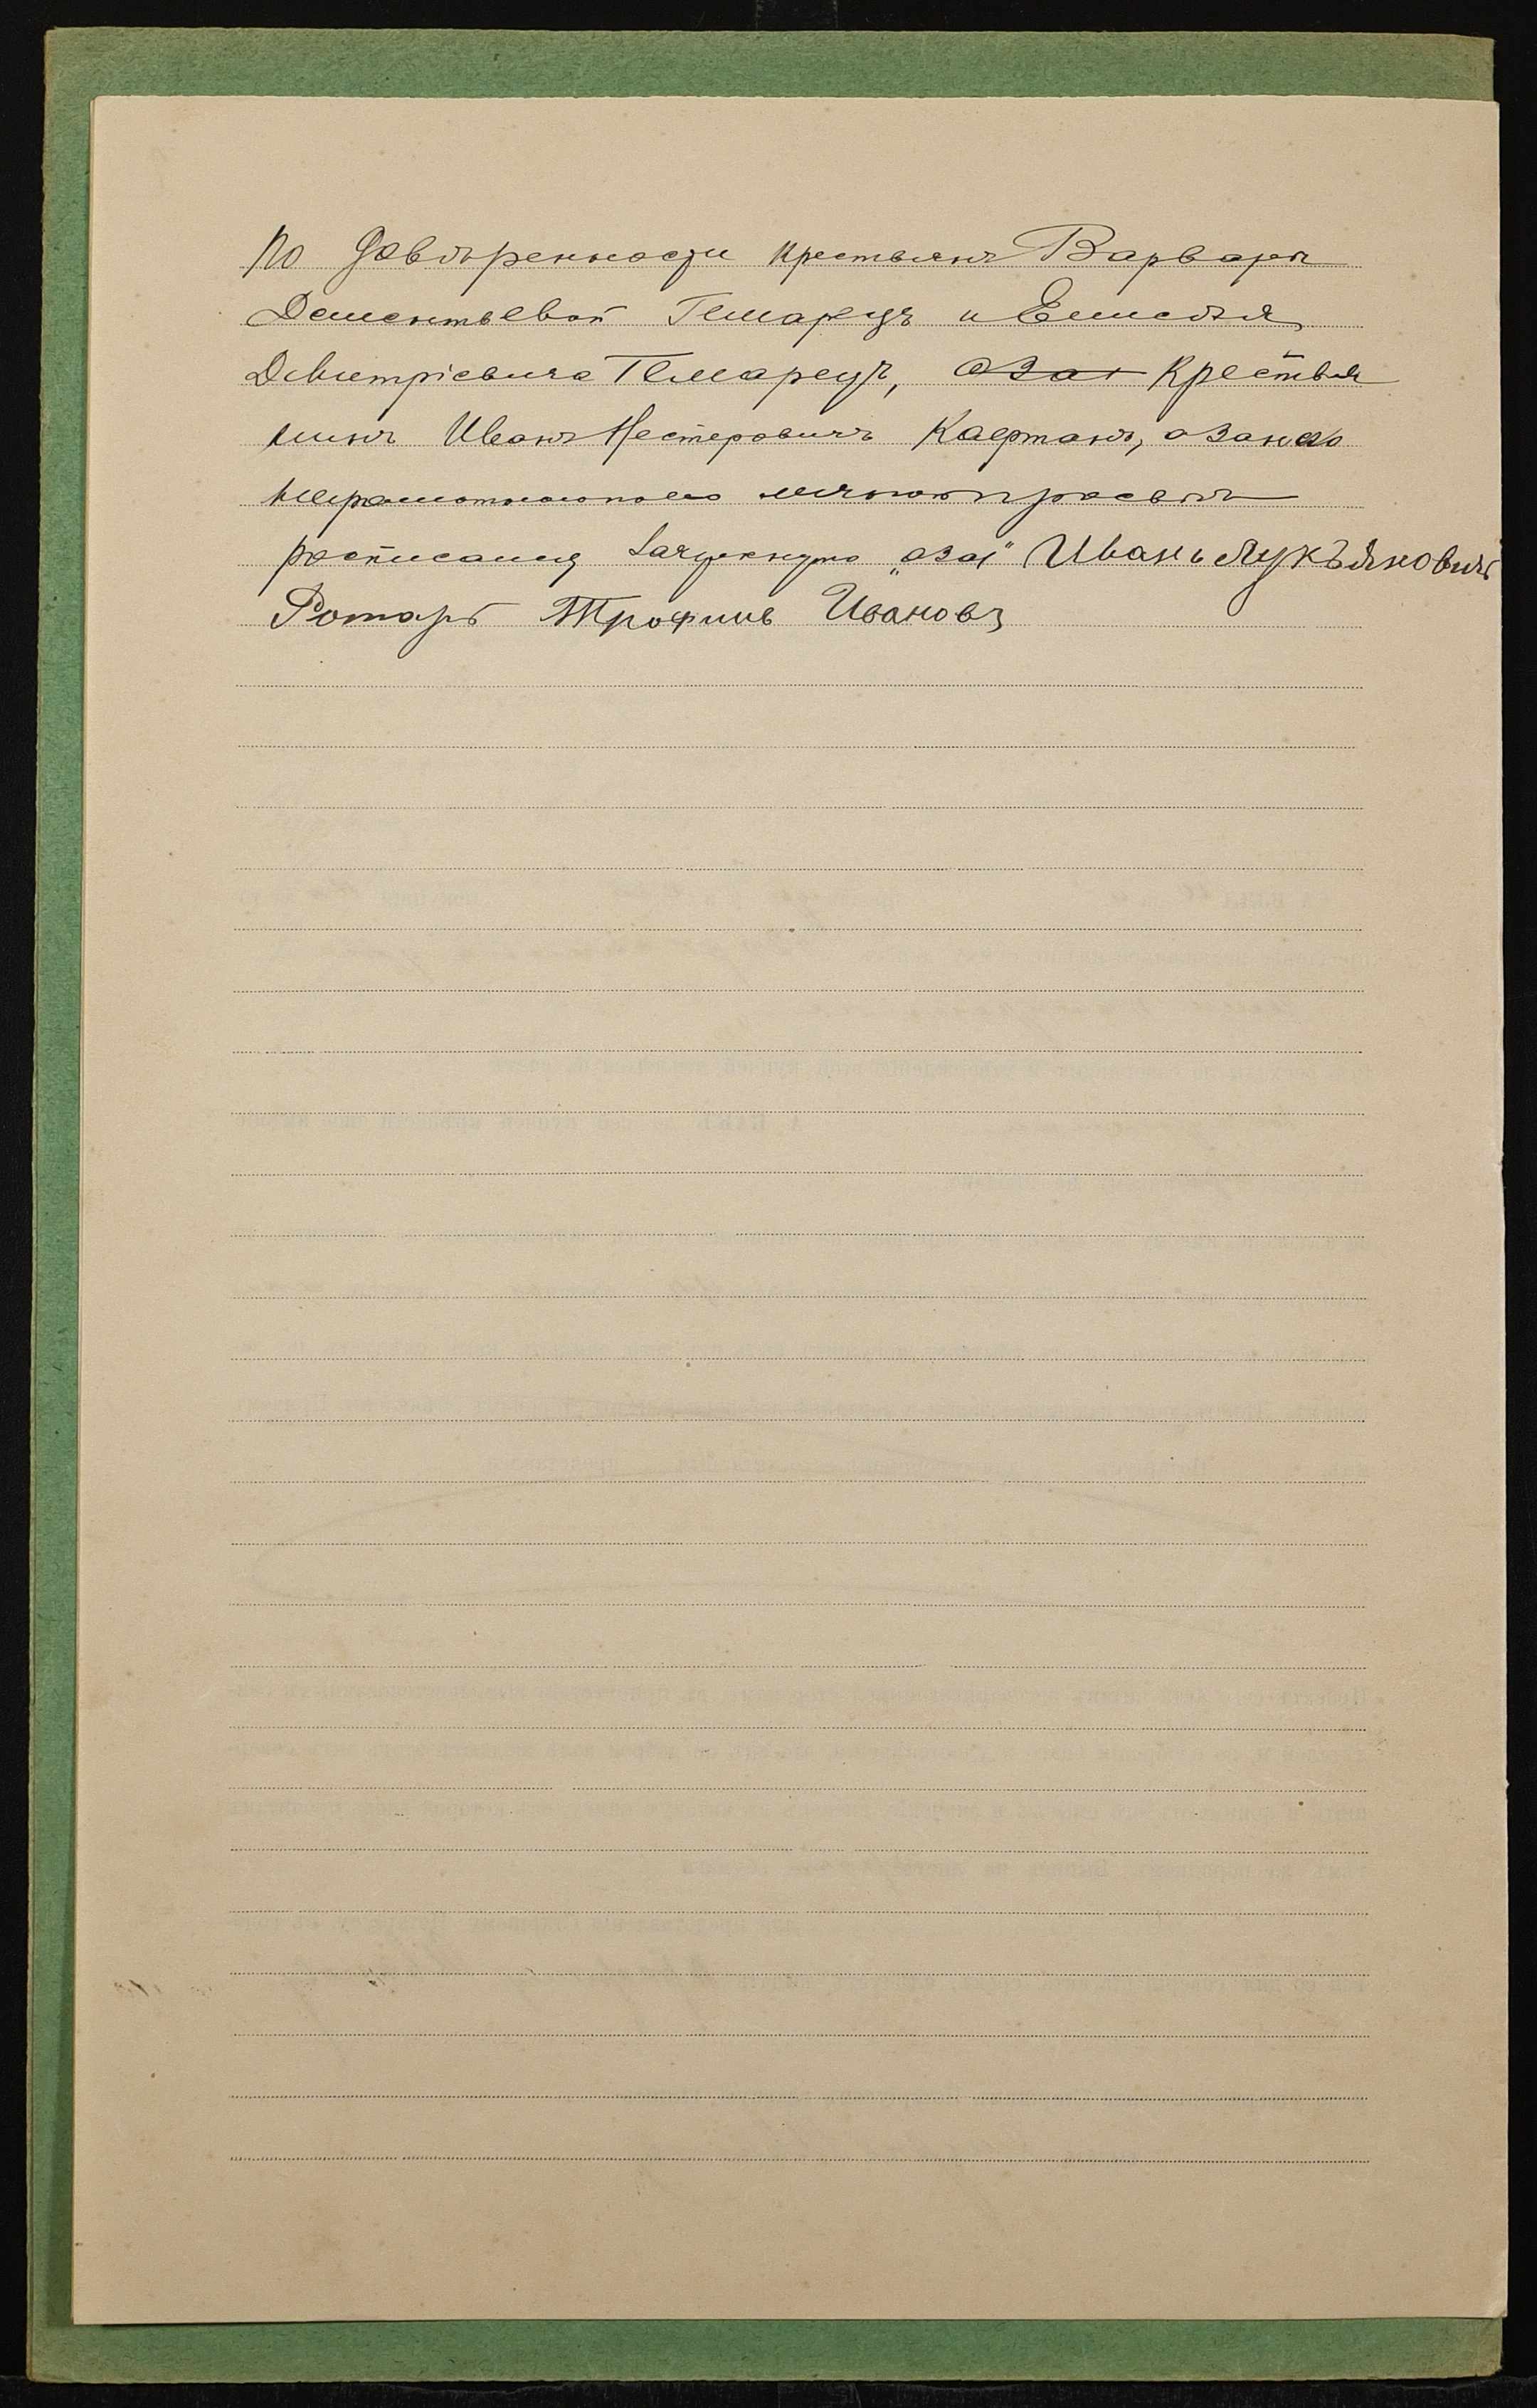 По довѣренности крестьянъ Варвары
Дементьевой Гемарецъ и Емельяна
Дмитріевича Гемарецъ, ~~аза~~ Крестья
нинъ Иванъ Несторовичъ Кафтанъ, аза него
неграмотнаго по его личной просьбѣ
росписался Зачеркнуто „аза" Иванъ Лукъяновичъ
Ротарь Трофимъ Ивановъ